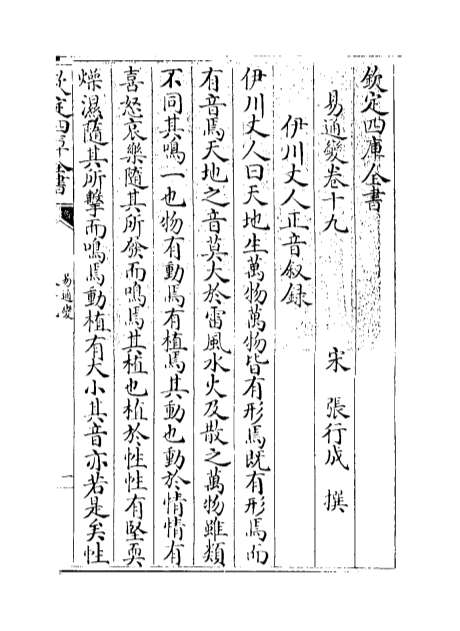 欽定四庫全書
易通變卷十九
宋 張行成 撰
伊川丈人正音叙録
伊川丈人曰天地生萬物萬物皆有形焉既有形焉而
有音焉天地之音莫大於雷風水火及散之萬物雖類
不同其鳴一也物有動焉有植焉其動也動於情情有
喜怒哀樂隨其所發而鳴焉其植也植於性性有堅耎
燥濕隨其所擊而鳴焉動植有大小其音亦若是矣性
欽定四庫全書
易通變
一